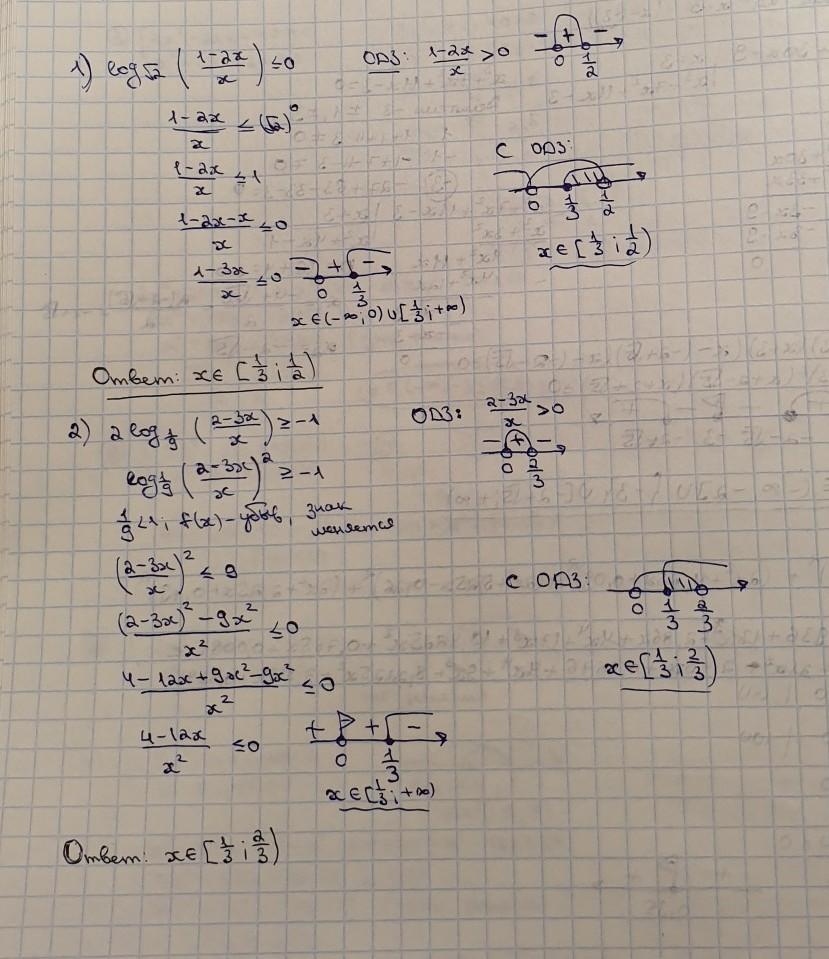 1) log√2 ( (1-2x)/x ) ≤0 ОДЗ: (1-2x)/x >0 - + -
0 1/2
(1-2x)/x ≤ (√2)^0
(1-2x)/x ≤ 1
(1-2x-x)/x ≤0
(1-3x)/x ≤0 - + -
0 1/3
x∈(-∞;0)∪[1/3;+∞)
С ОДЗ:
0 1/3 1/2
x∈[1/3;1/2)
Ответ: x∈[1/3;1/2)
2) 2log1/9 ( (2-3x)/x ) ≥ -1 ОДЗ: (2-3x)/x >0
- + -
0 2/3
log1/9 ( (2-3x)/x )² ≥ -1
1/9<1; f(x)-убыв, знак
меняется
( (2-3x)/x )² ≤ 9
((2-3x)² - 9x²)/x² ≤0
(4-12x+9x²-9x²)/x² ≤0
(4-12x)/x² ≤0 + + -
0 1/3
x∈[1/3;+∞)
С ОДЗ:
0 1/3 2/3
x∈[1/3;2/3)
Ответ: x∈[1/3;2/3)